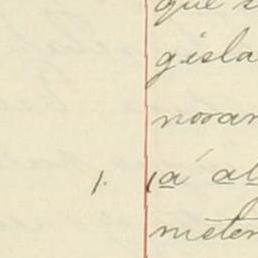 que s
gisla
novam
1. (a al
meten